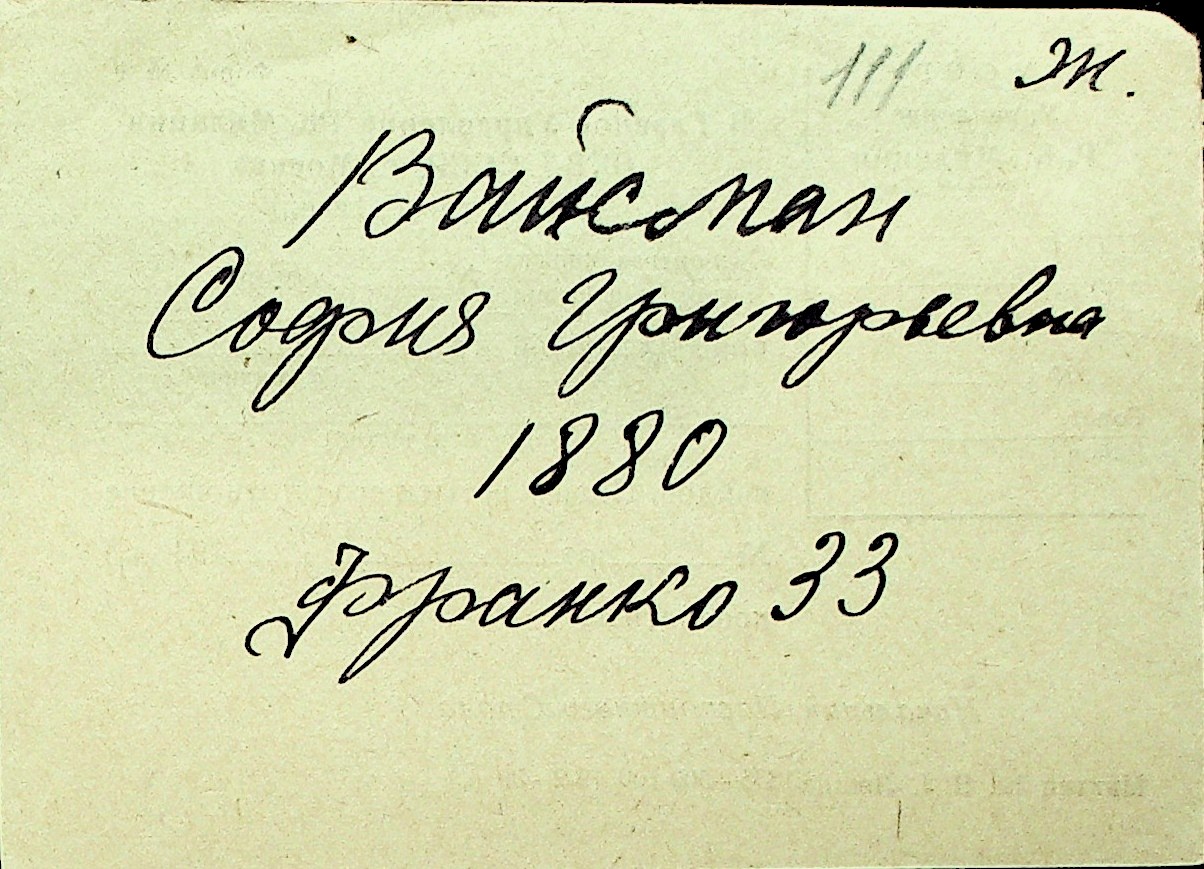 111 Ж.
Вайсман
София Григорьевна
1880
Франко 33